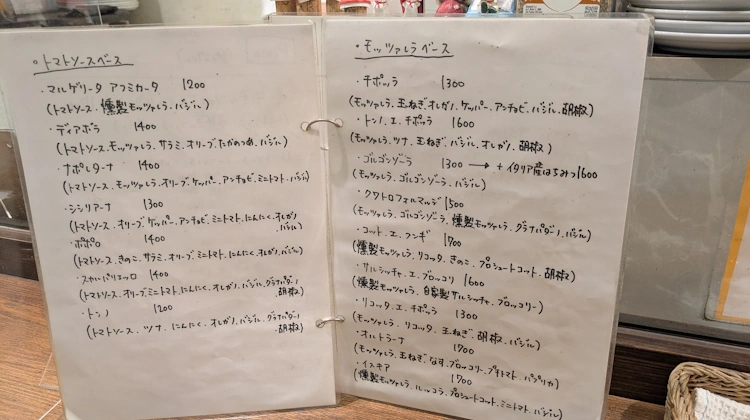 ・トマトソースベース
・マルゲリータ アフミカータ 1200
(トマトソース・燻製モッツァレラ・バジル)
・ディアボラ 1400
(トマトソース・モッツァレラ・サラミ・オリーブ・たかのつめ・バジル)
・ナポレターナ 1400
(トマトソース・モッツァレラ・オリーブ・ケッパー・アンチョビ・ミニトマト・バジル)
・シシリアーナ 1300
(トマトソース・オリーブ・ケッパー・アンチョビ・ミニトマト・にんにく・オレガノ
・バジル)
・ポポロ 1400
(トマトソース・きのこ・サラミ・オリーブ・ミニトマト・にんにく・オレガノ・バジル)
・スカルパリエッロ 1400
(トマトソース・オリーブ・ミニトマト・にんにく・オレガノ・バジル・グラナパダーノ
・胡椒)
・トンノ 1200
(トマトソース・ツナ・にんにく・オレガノ・バジル・グラナパダーノ
・胡椒)
・モッツァレラベース
・チポッラ 1300
(モッツァレラ・玉ねぎ・オレガノ・ケッパー・アンチョビ・バジル・胡椒)
・トンノ・エ・チポッラ 1600
(モッツァレラ・ツナ・玉ねぎ・バジル・オレガノ・胡椒)
・ゴルゴンゾーラ 1300 → +イタリア産はちみつ1600
(モッツァレラ・ゴルゴンゾーラ・バジル)
・クワトロフォルマッジ 1500
(モッツァレラ・ゴルゴンゾーラ・燻製モッツァレラ・グラナパダーノ・バジル)
・コット・エ・フンギ 1700
(燻製モッツァレラ・リコッタ・きのこ・プロシュートコット・胡椒)
・サルシッチャ・エ・ブロッコリ 1600
(燻製モッツァレラ・自家製サルシッチャ・ブロッコリー)
・リコッタ・エ・チポッラ 1300
(モッツァレラ・リコッタ・玉ねぎ・胡椒・バジル)
・オルトラーナ 1700
(モッツァレラ・玉ねぎ・なす・ブロッコリー・プチトマト・パプリカ)
・イスキア 1700
(燻製モッツァレラ・ルッコラ・プロシュートコット・ミニトマト・バジル)